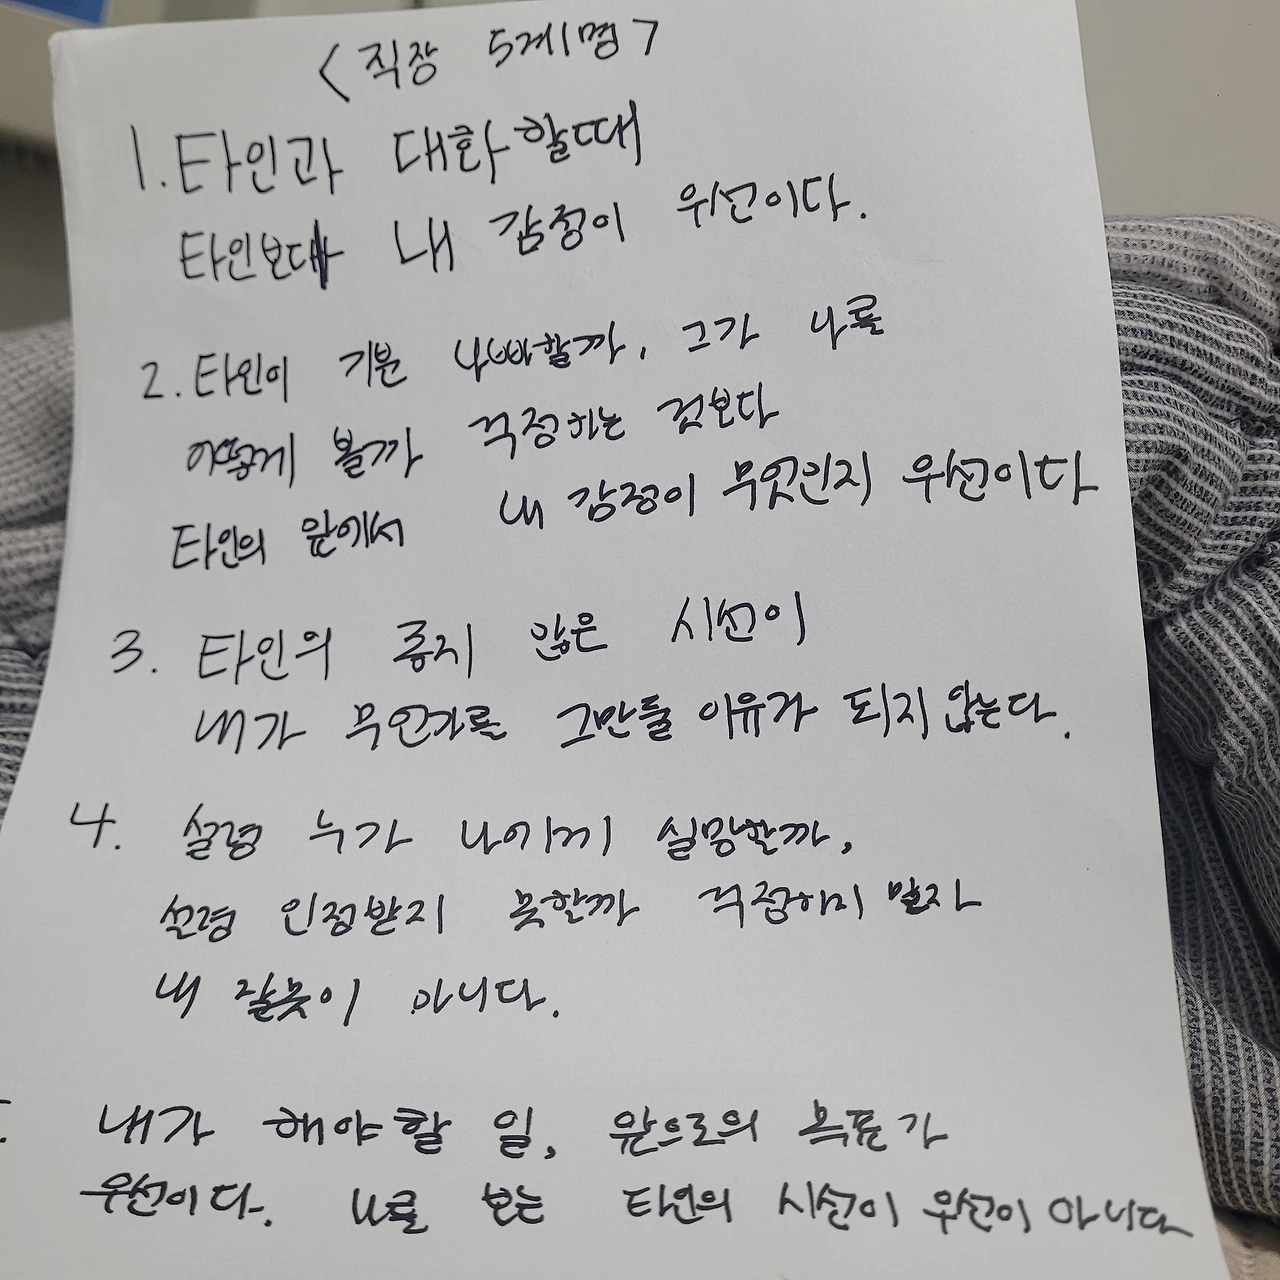 <직장 5계명>
1. 타인과 대화할때
타인보다 내 감정이 우선이다.
2. 타인이 기분 나빠할까, 그가 나를
어떻게 볼까 걱정하는 것보다
타인의 앞에서 내 감정이 무엇인지 우선이다
3. 타인의 좋지 않은 시선이
내가 무언가를 그만둘 이유가 되지 않는다.
4. 설령 누가 나에게 실망할까,
설령 인정받지 못할까 걱정하지 말자
내 잘못이 아니다.
내가 해야할 일, 앞으로의 목표가
우선이다. 나를 보는 타인의 시선이 우선이 아니다